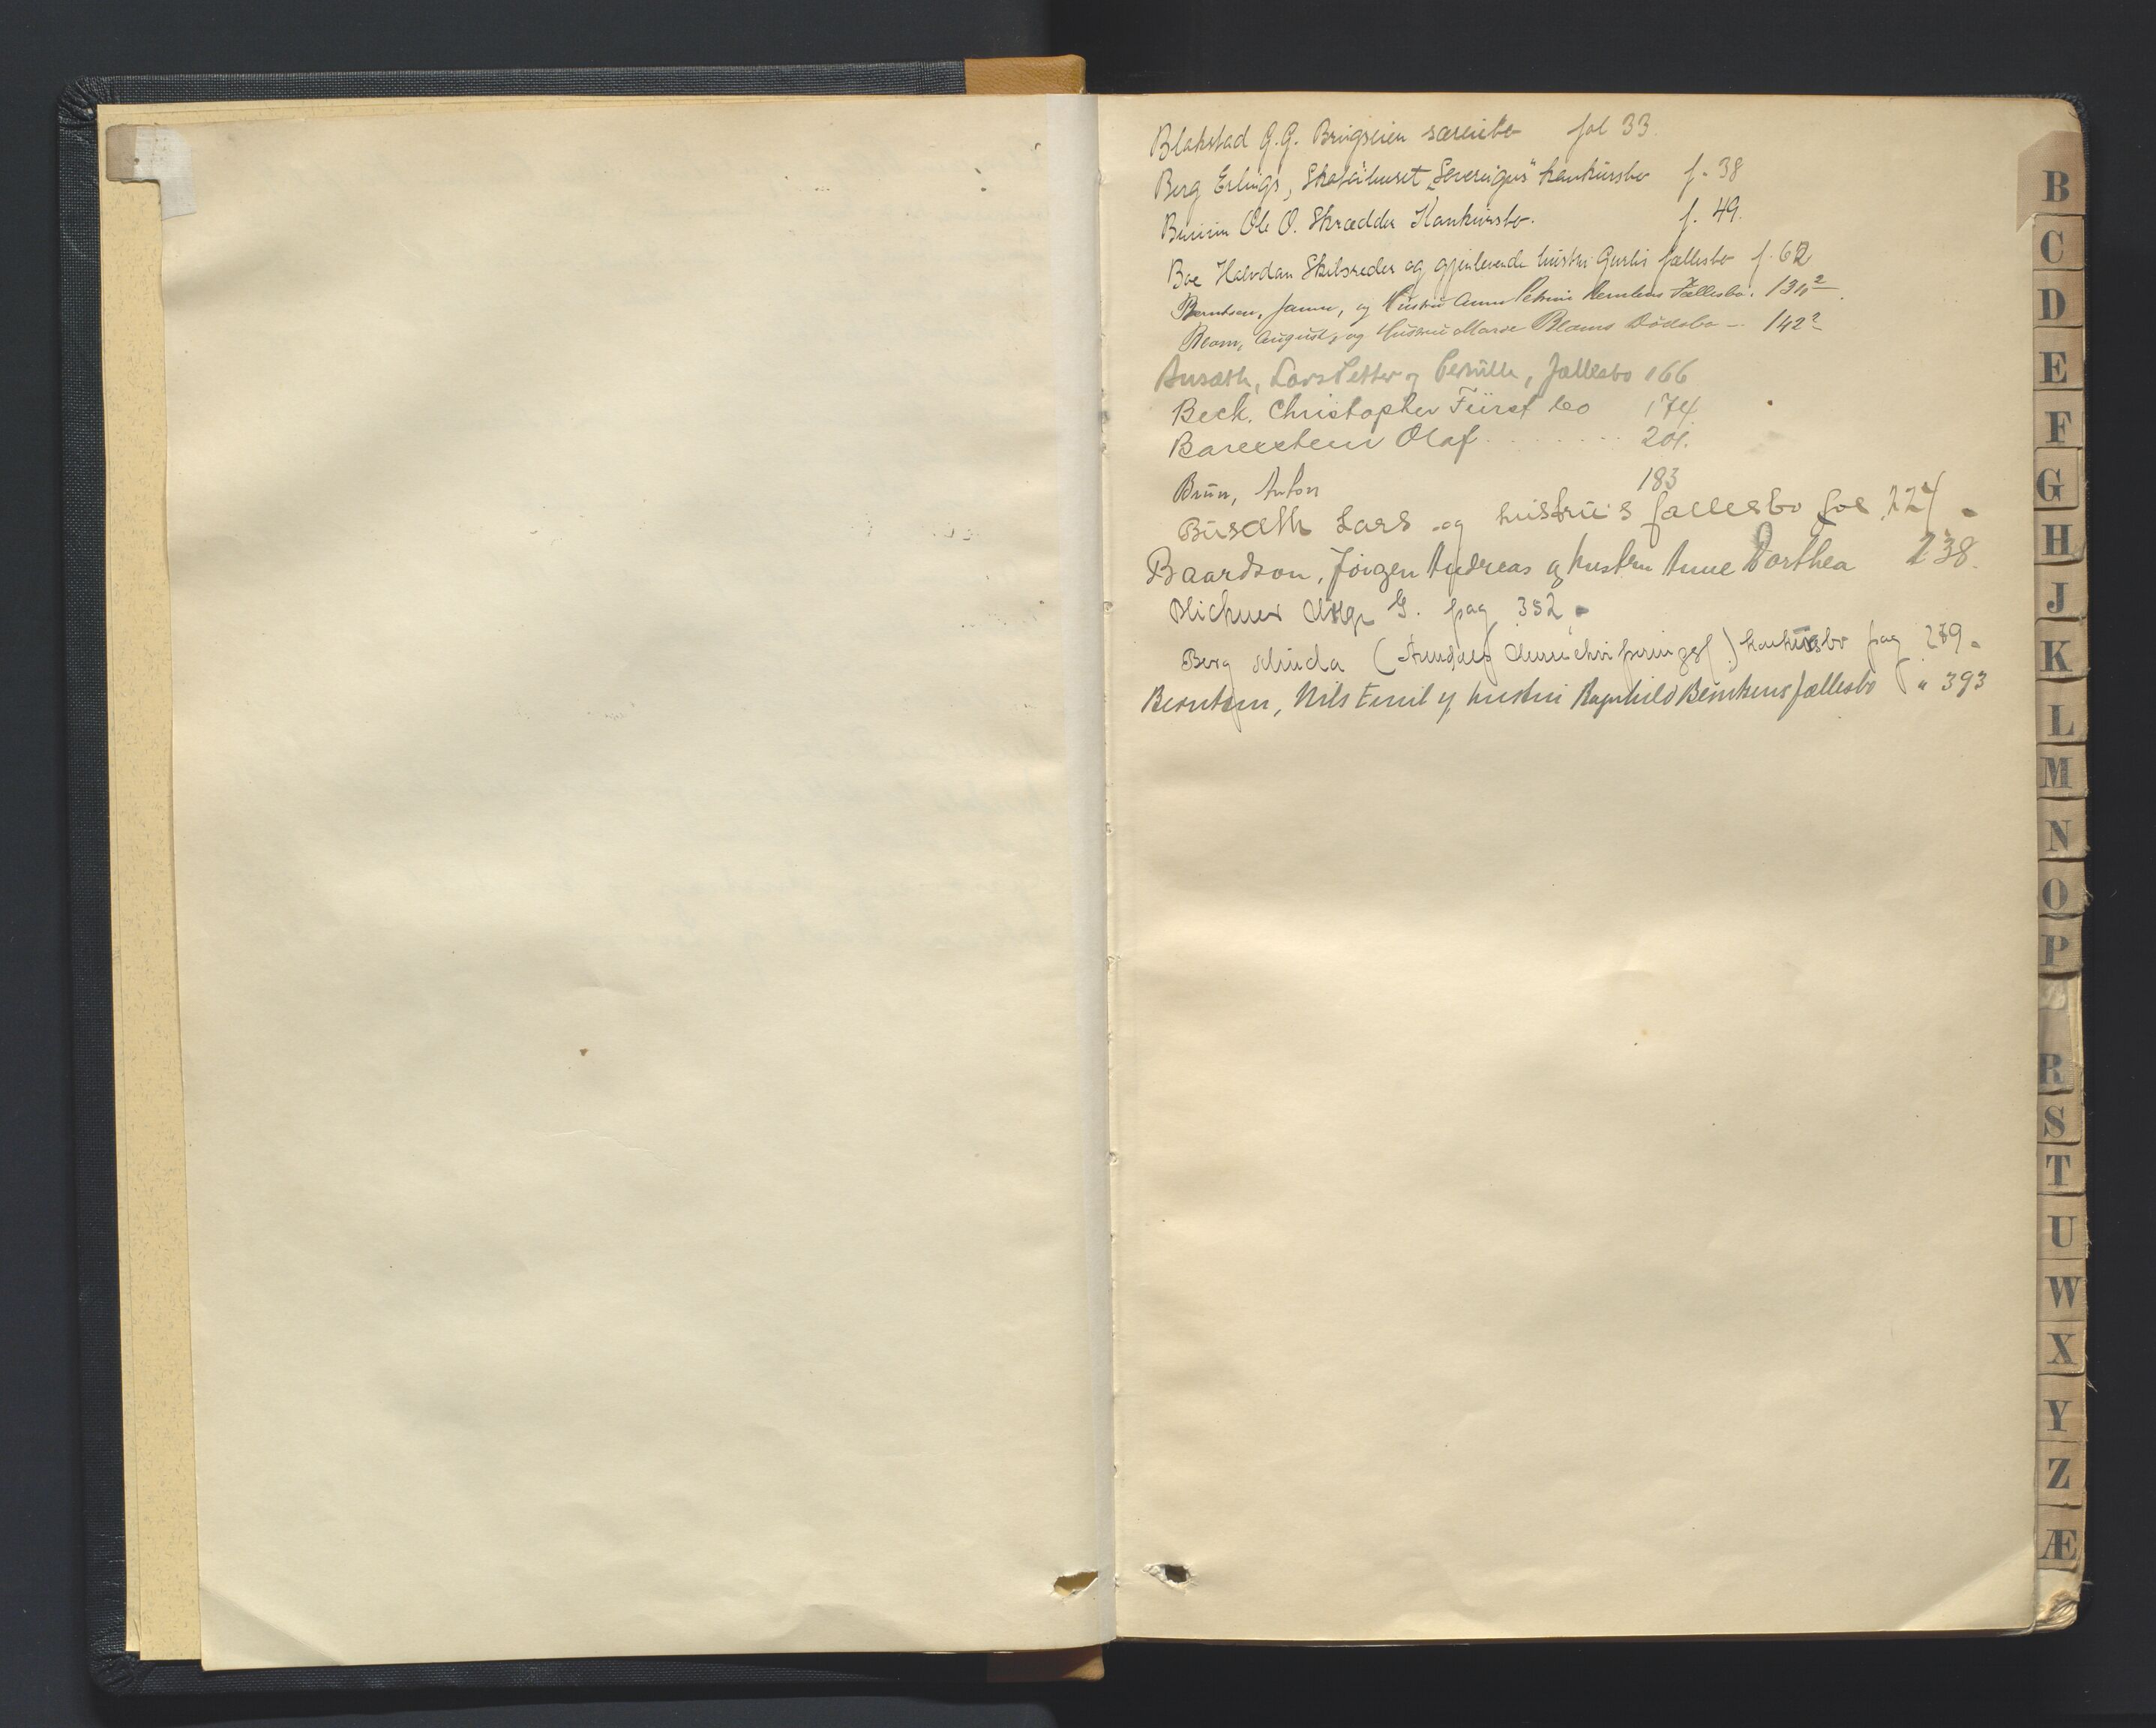 Blakstad G.G. Bringsien særeiebo fol 33.
Berg Erlings, Skotøihuset „Sovereigns" konkursbo f. 38
Ole O. Skrædder Konkursbo. f. 49.
Boe Halvdan Skibsreder og gjenlevende hustru Gurlis fællesbo f. 62
Berntsen, og Hustru Anna Petrine Berntsens Fællesbo. 134²
Beam, August, og Hustru Marie Beams Dödsbo — 142²
Busæth, Lars Petter og Pernille, fællesbo 166
Beck, Christopher Fürst bo 174
Olaf 201.
Bruun, Anton 183
Busæth Lars og hustrus fællesbo fol 224
Baardson, Jörgen Andreas og hustru Anne Dorthea 238.
Blichner G. pag 352
Berg (Arendals ) konkursbo pag 279
Berntsen, Nils Emil og hustru Ragnhild Berntsens fællesbo " 393
B
C
D
E
F
G
H
J
K
L
M
N
O
P
R
S
T
U
W
X
Y
Z
Æ